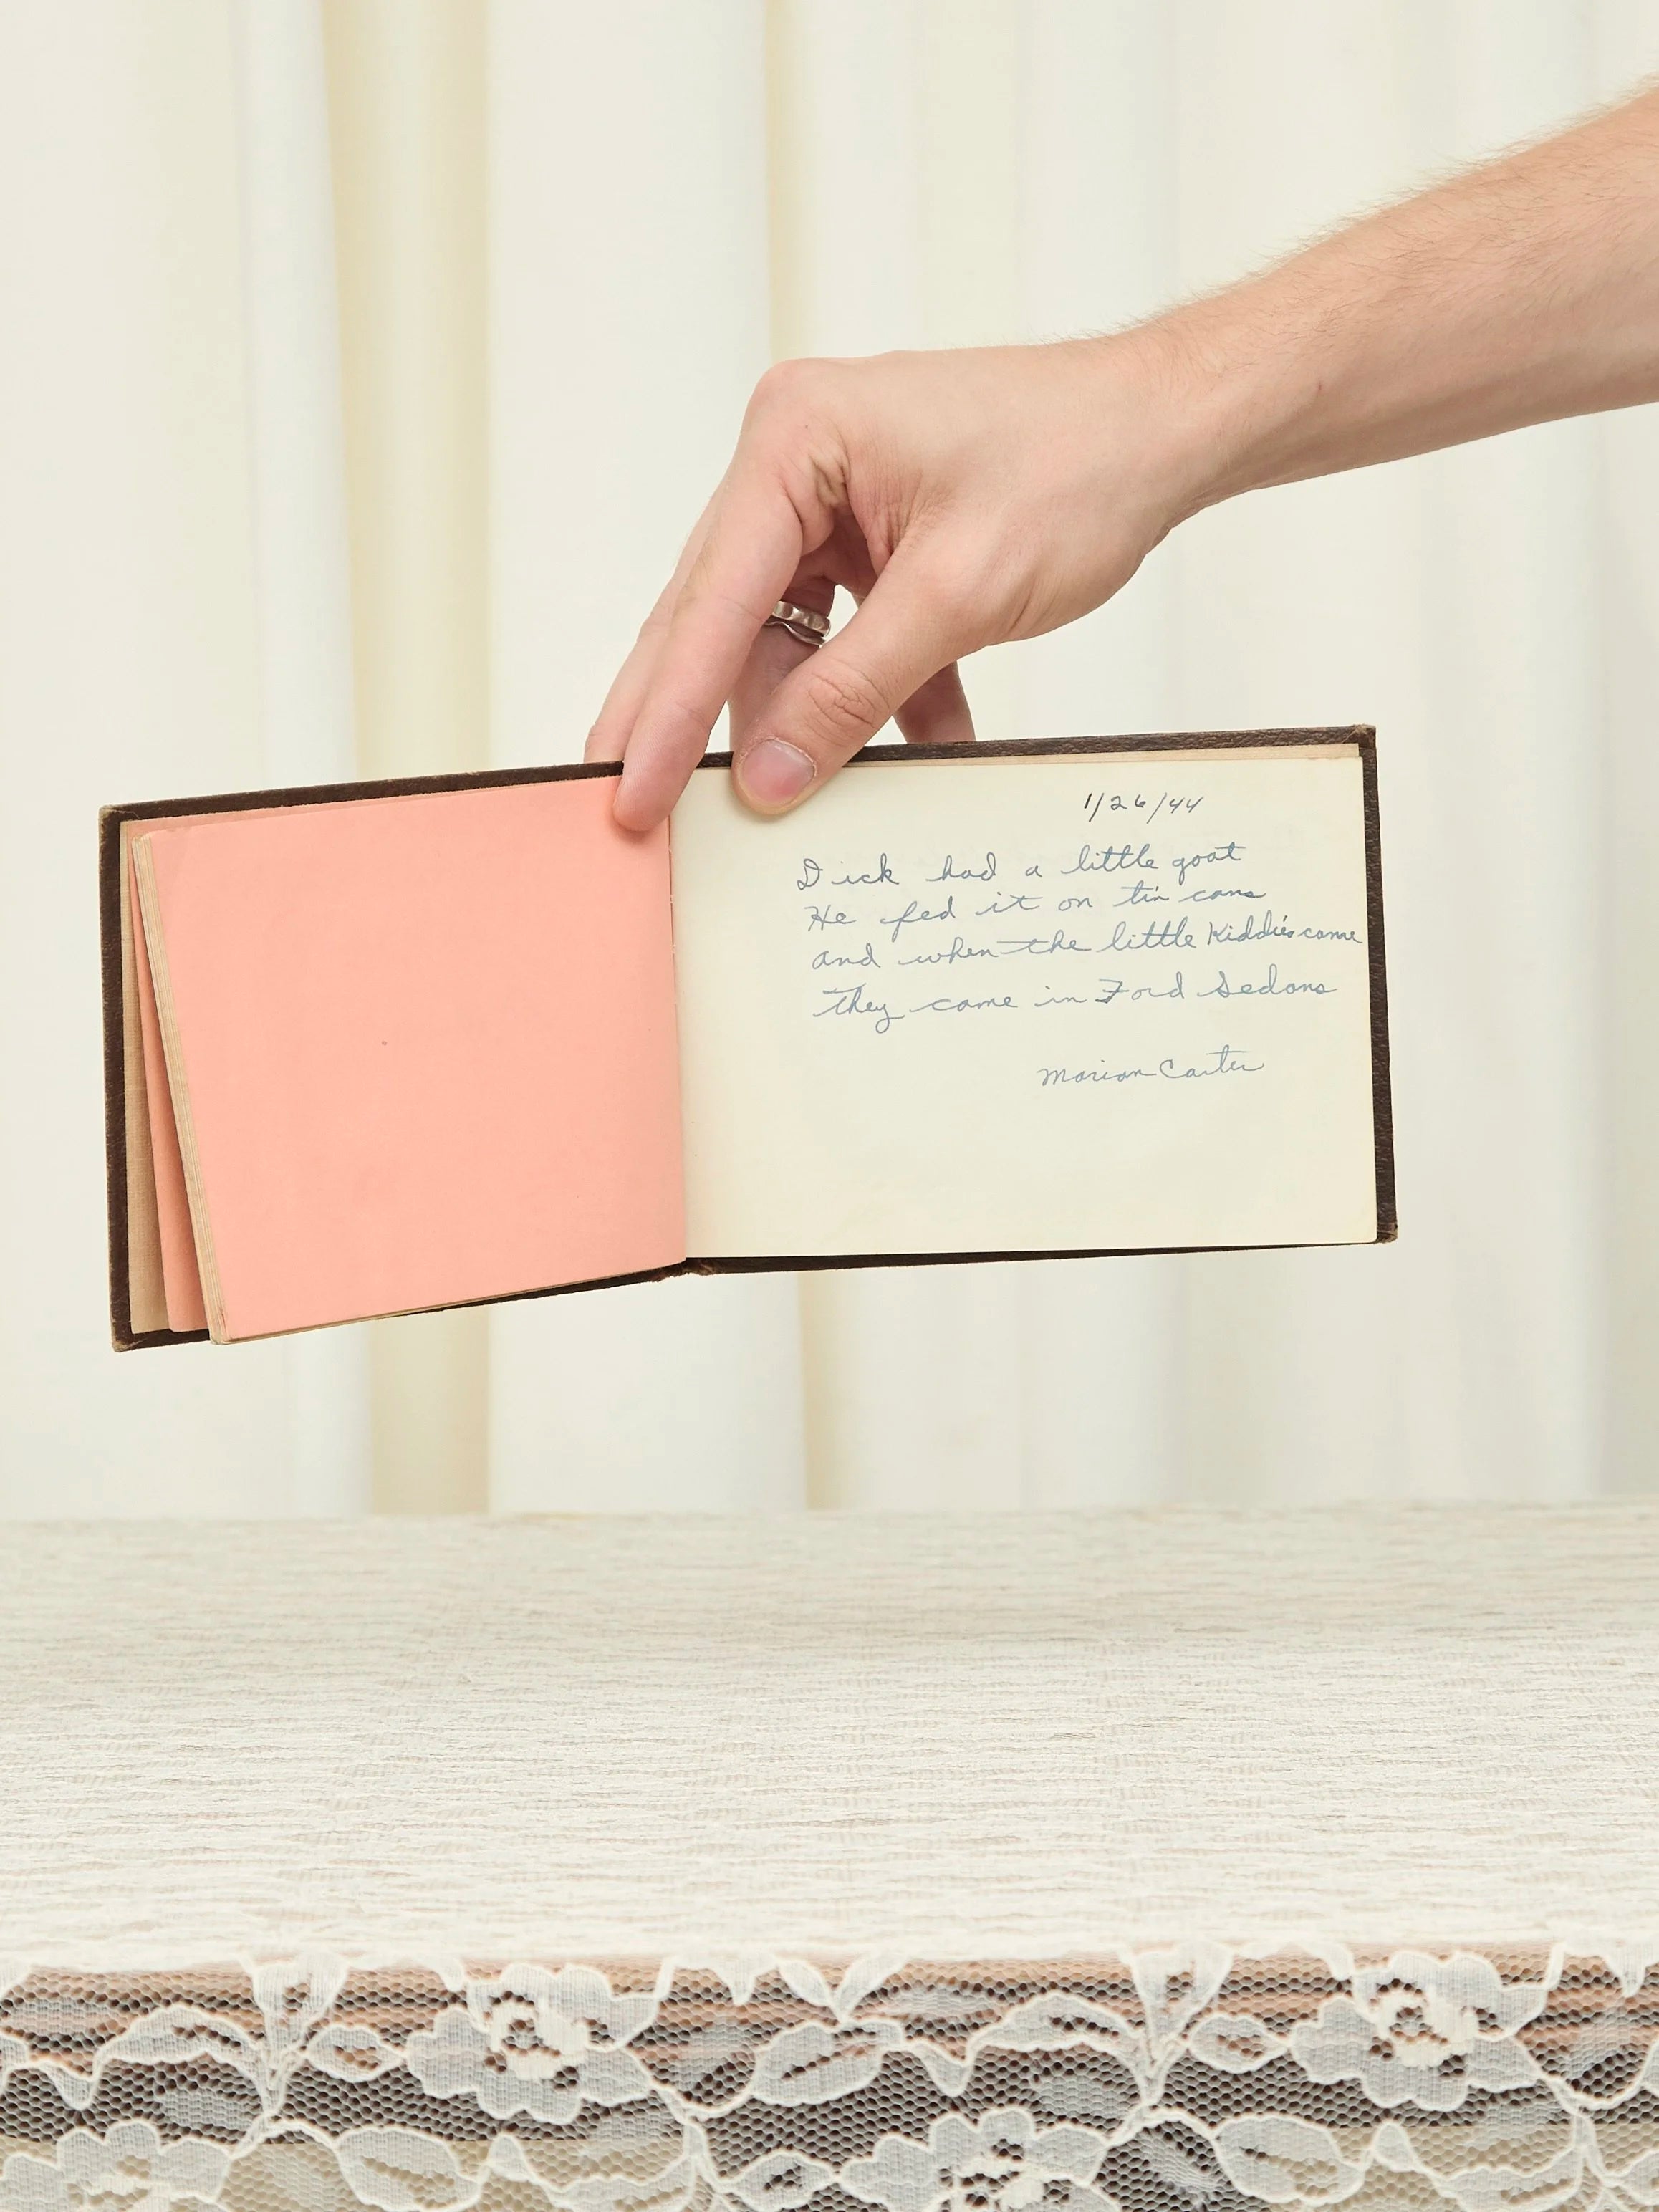 1/26/44
Dick had a little goat
He fed it on tin cans
and when the little Kiddies came
they came in Ford Sedans
Marian Carter